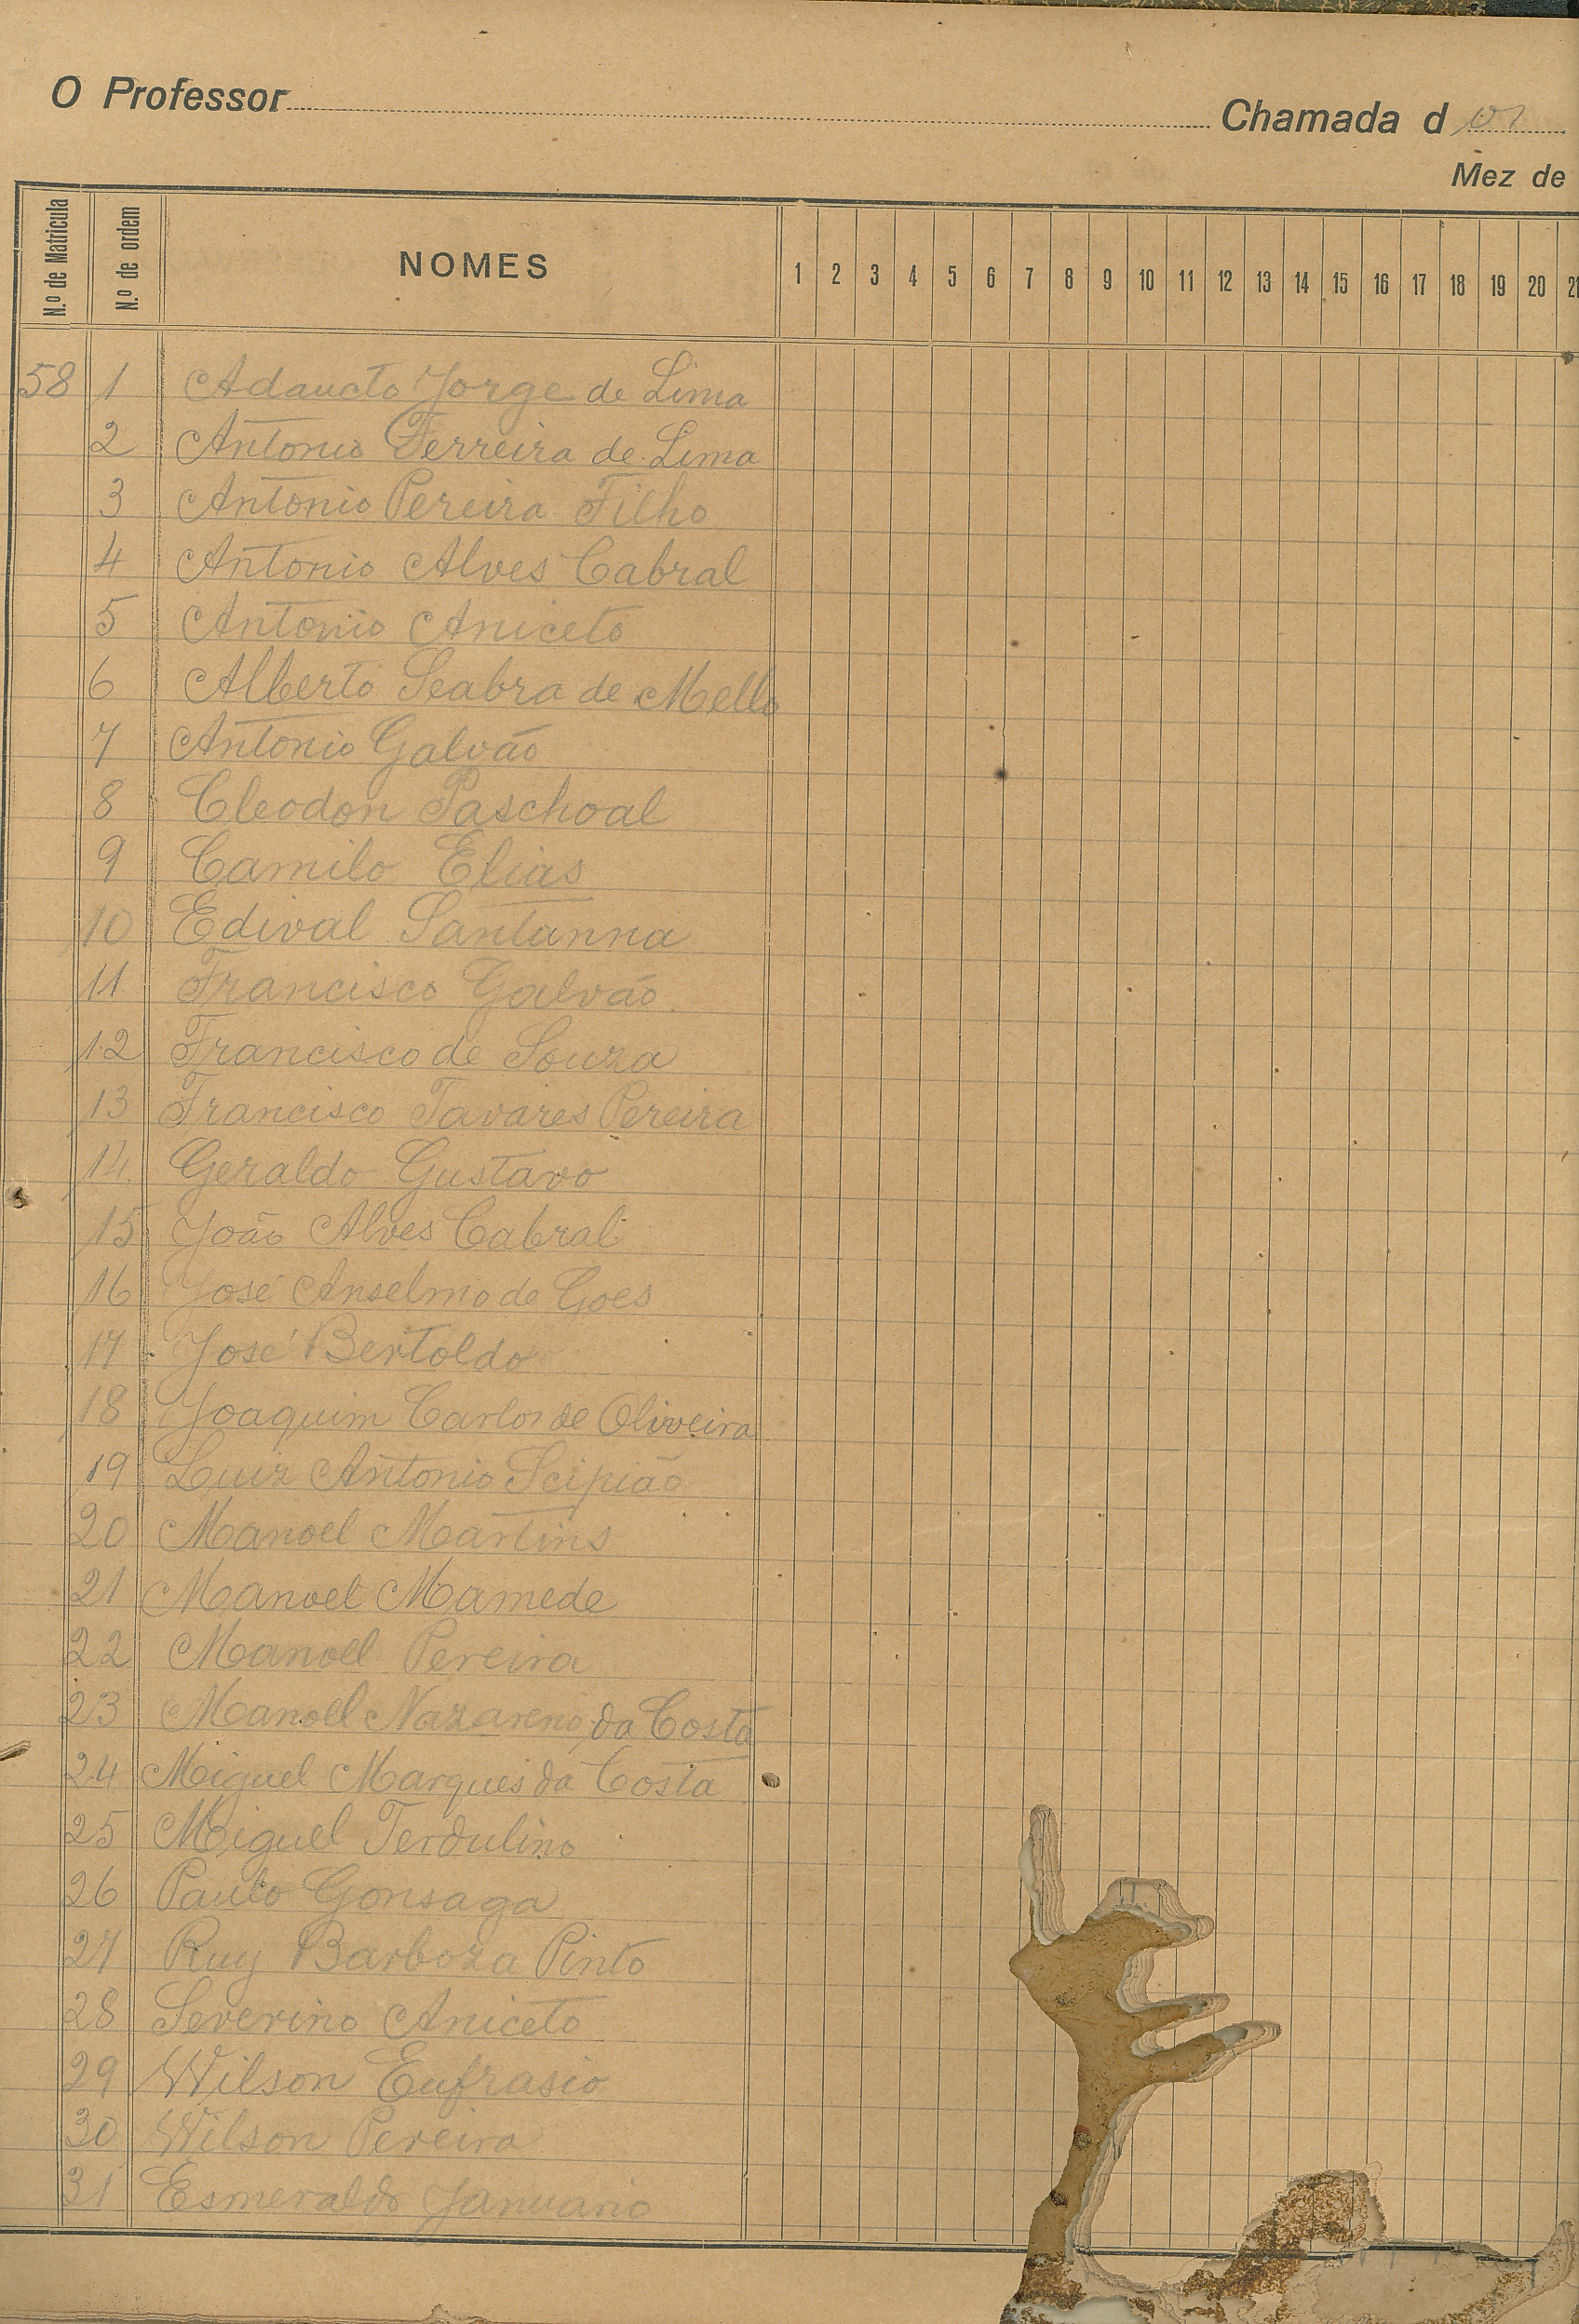 O Professor Chamada d os
Mez de
N.º de Matricula N.º de ordem NOMES 1 2 3 4 5 6 7 8 9 10 11 12 13 14 15 16 17 18 19 20 21
58 1 Adaucto Jorge de Lima
2 Antonio Ferreira de Lima
3 Antonio Pereira Filho
4 Antonio Alves Cabral
5 Antonio Aniceto
6 Alberto Seabra de Mello
7 Antonio Galvão
8 Cleodon Paschoal
9 Camilo Elias
10 Edival Santanna
11 Francisco Galvão
12 Francisco de Souza
13 Francisco Tavares Pereira
14 Geraldo Gustavo
15 João Alves Cabral
16 José Anselmo de Goes
17 José Bertoldo
18 Joaquim Carlos de Oliveira
19 Luiz Antonio Scipião
20 Manoel Martins
21 Manoel Mamede
22 Manoel Pereira
23 Manoel Nazareno da Costa
24 Miguel Marques da Costa
25 Miguel Terdulino
26 Paulo Gonsaga
27 Ruy Barboza Pinto
28 Severino Aniceto
29 Wilson Eufrasio
30 Wilson Pereira
31 Esmeraldo Januario